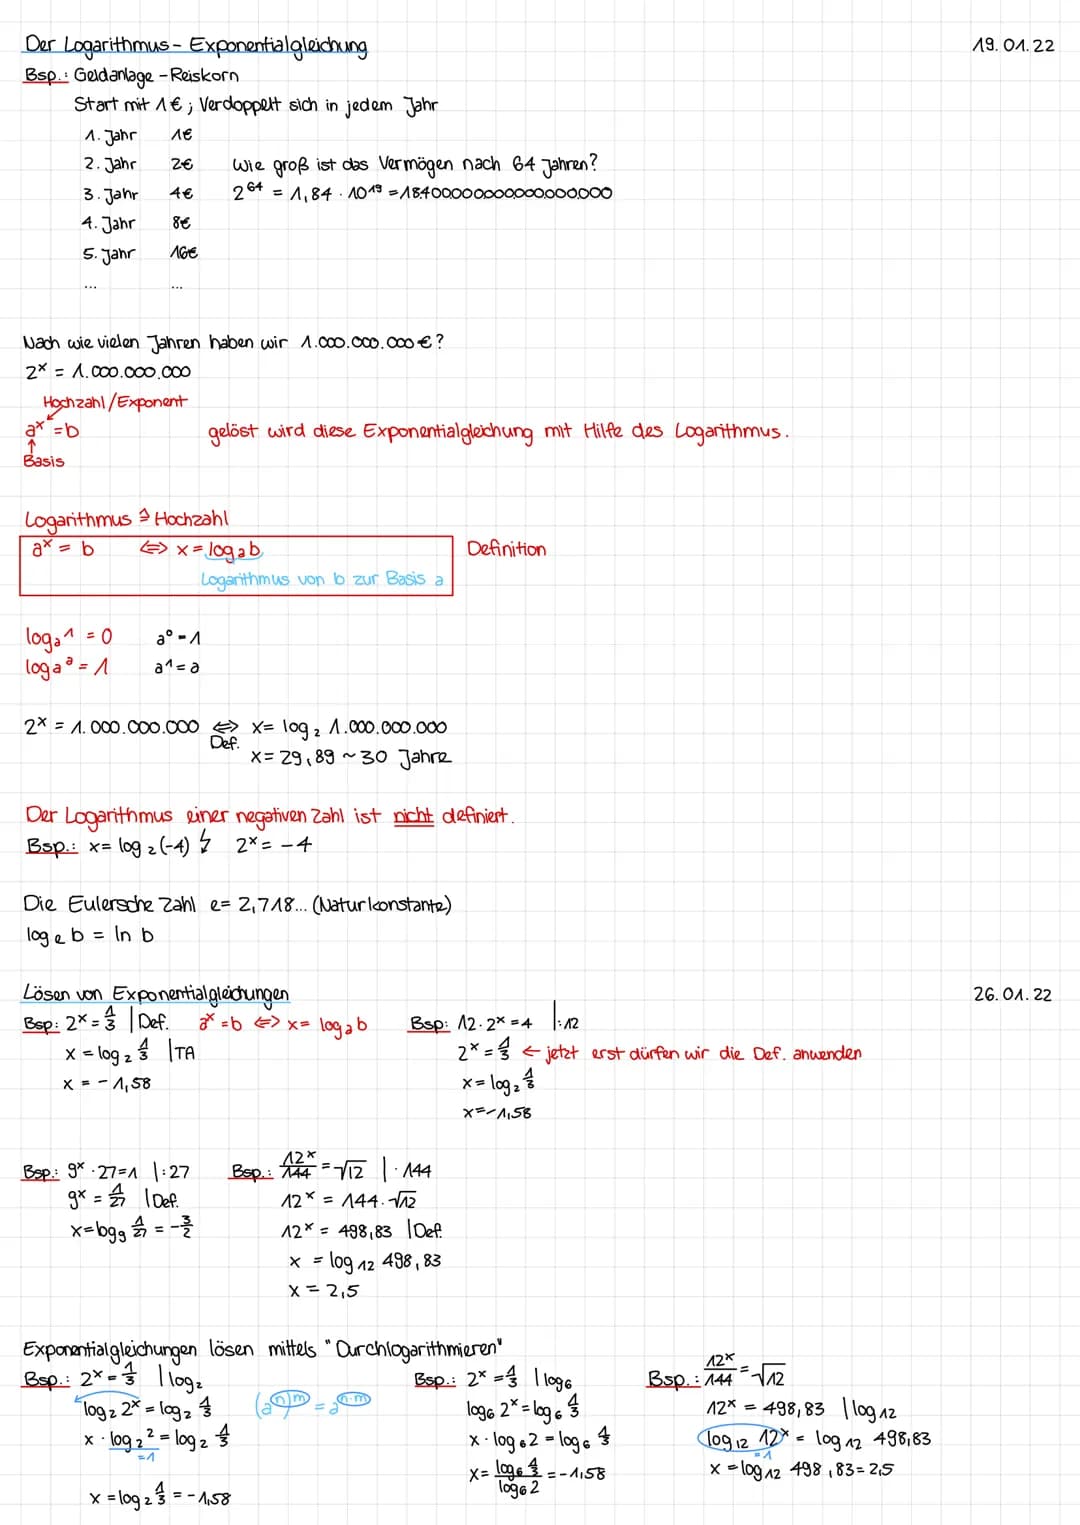 Der Logarithmus - Exponentialgleichung 19.01.22
Bsp.: Geldanlage - Reiskorn
Start mit 1€; Verdoppelt sich in jedem Jahr
1. Jahr 1€
2. Jahr 2€ Wie groß ist das Vermögen nach 64 Jahren?
3. Jahr 4€ 2^64 = 1,84 · 10^19 = 18400000000000000000
4. Jahr 8€
5. Jahr 16€
... ...
Nach wie vielen Jahren haben wir 1.000.000.000€?
2^x = 1.000.000.000
Hochzahl/Exponent
a^x = b gelöst wird diese Exponentialgleichung mit Hilfe des Logarithmus.
↑
Basis
Logarithmus ≙ Hochzahl
a^x = b ⟺ x = log_a b Definition
Logarithmus von b zur Basis a
log_a 1 = 0 a^0 = 1
log_a a = 1 a^1 = a
2^x = 1.000.000.000 ⟺ x = log_2 1.000.000.000
Def.
x = 29,89 ~ 30 Jahre
Der Logarithmus einer negativen Zahl ist nicht definiert.
Bsp.: x = log_2 (-4) ↯ 2^x = -4
Die Eulersche Zahl e = 2,718... (Naturkonstante)
log_e b = ln b
Lösen von Exponentialgleichungen 26.01.22
Bsp: 2^x = 1/3 | Def. a^x = b ⟺ x = log_a b Bsp: 12 · 2^x = 4 | :12
x = log_2 1/3 | TA 2^x = 1/3 ← jetzt erst dürfen wir die Def. anwenden
x = -1,58 x = log_2 1/3
x = -1,58
Bsp.: 9^x · 27 = 1 | :27 Bsp.: 12^x/144 = √12 | · 144
9^x = 1/27 | Def. 12^x = 144 · √12
x = log_9 1/27 = -3/2 12^x = 498,83 | Def.
x = log_12 498,83
x = 2,5
Exponentialgleichungen lösen mittels "Durchlogarithmieren"
Bsp.: 2^x = 1/3 | log_2 Bsp.: 2^x = 1/3 | log_6 Bsp.: 12^x/144 = √12
log_2 2^x = log_2 1/3 (a^n)^m = a^n·m log_6 2^x = log_6 1/3 12^x = 498,83 | log_12
x · log_2 2 = log_2 1/3 x · log_6 2 = log_6 1/3 log_12 12^x = log_12 498,83
=1 =1
x = log_6 1/3 / log_6 2 = -1,58 x = log_12 498,83 = 2,5
x = log_2 1/3 = -1,58